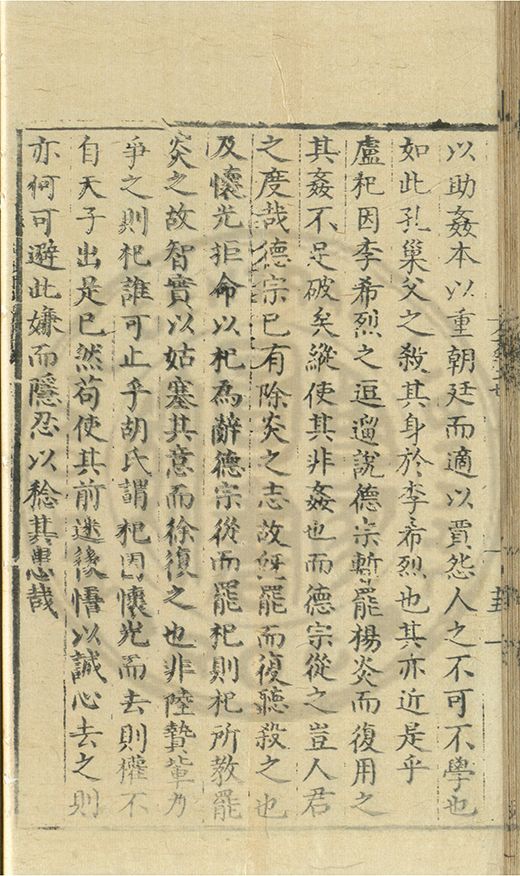 以助姦本以重朝廷而適以賈怨人之不可不學也
如此孔巢父之殺其身於李希烈也其亦近是乎
盧杞因李希烈之逗遛說德宗暫罷楊炎而復用之
其姦不足破矣縱使其非姦也而德宗從之豈人君
之度哉德宗已有除炎之志故旣罷而復聽殺之也
及懷光拒命以杞爲辭德宗從而罷杞則杞所教罷
炎之故智實以姑塞其意而徐復之也非陸贄輩乃
爭之則杞誰可止乎胡氏謂杞因懷光而去則權不
自天子出是已然苟使其前迷後悟以誠心去之則
亦何可避此嫌而隱忍以稔其慝哉